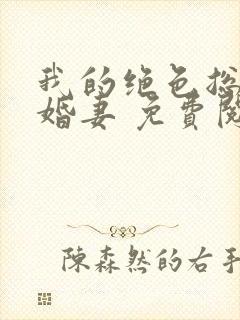 我的绝色总
婚妻 免費閱
陳森然的右手